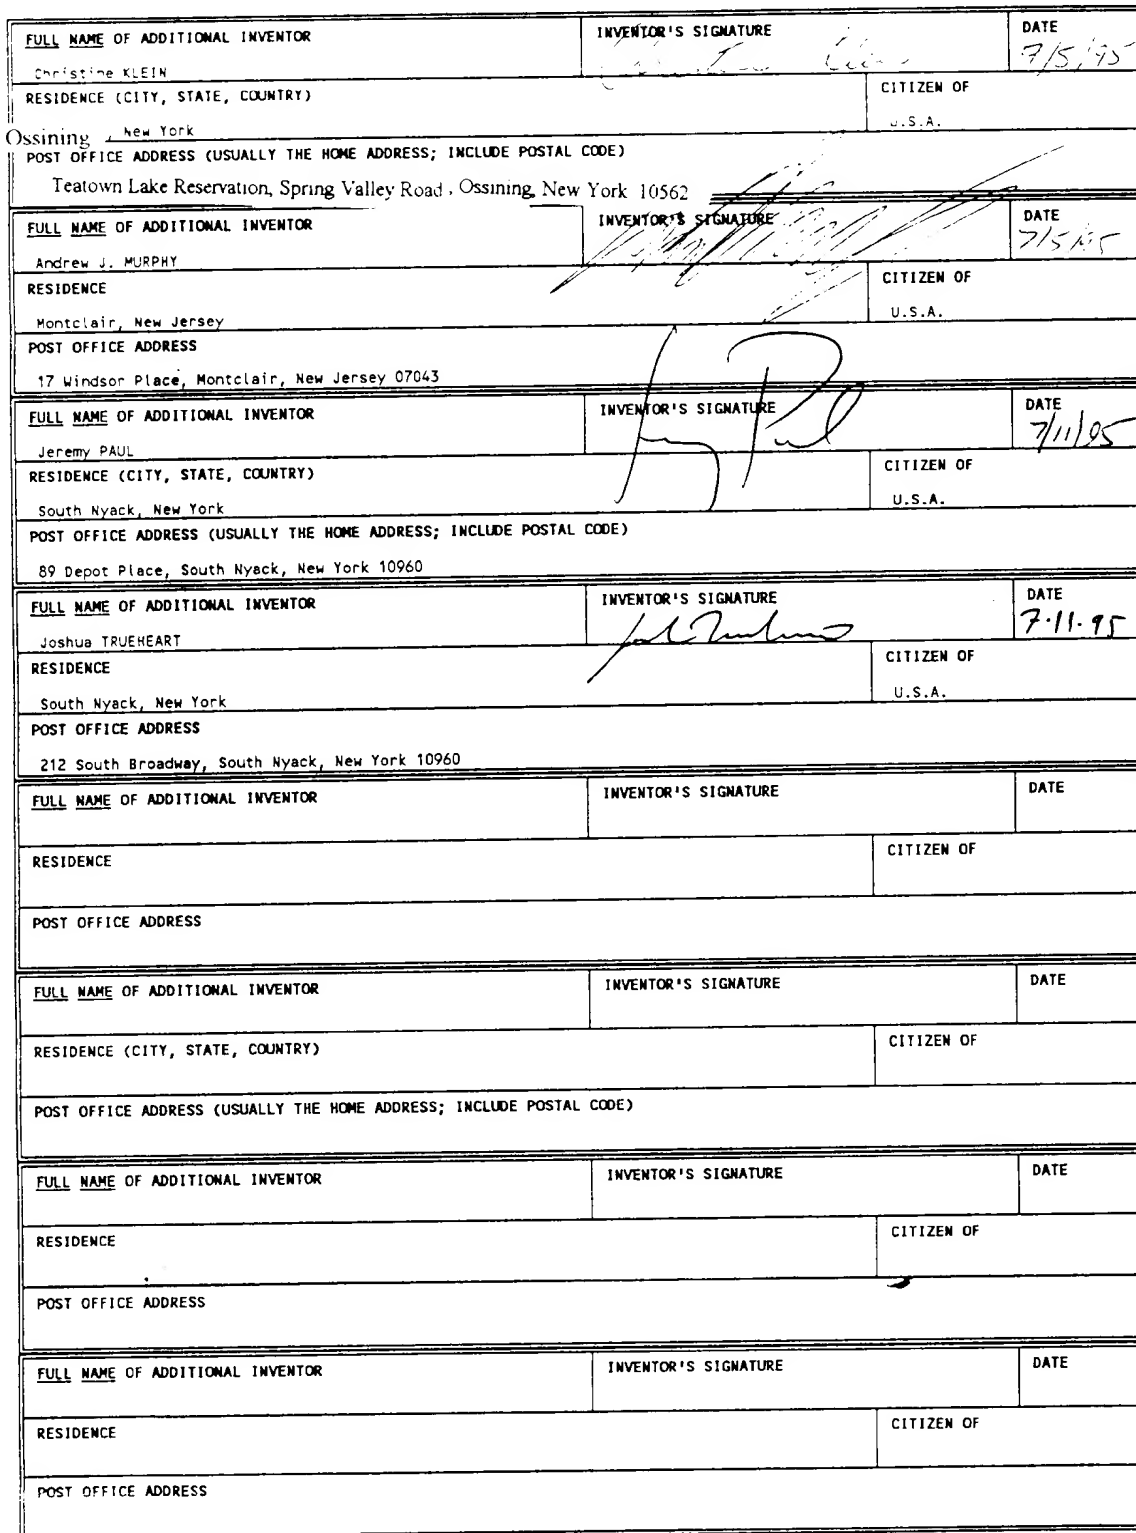 FULL NAME OF ADDITIONAL INVENTOR INVENTOR'S SIGNATURE DATE
Christine KLEIN 7/5/95
RESIDENCE (CITY, STATE, COUNTRY) CITIZEN OF
Ossining, New York U.S.A.
POST OFFICE ADDRESS (USUALLY THE HOME ADDRESS; INCLUDE POSTAL CODE)
Teatown Lake Reservation, Spring Valley Road, Ossining, New York 10562
FULL NAME OF ADDITIONAL INVENTOR INVENTOR'S SIGNATURE DATE
Andrew J. MURPHY 7/5/95
RESIDENCE CITIZEN OF
Montclair, New Jersey U.S.A.
POST OFFICE ADDRESS
17 Windsor Place, Montclair, New Jersey 07043
FULL NAME OF ADDITIONAL INVENTOR INVENTOR'S SIGNATURE DATE
Jeremy PAUL 7/11/95
RESIDENCE (CITY, STATE, COUNTRY) CITIZEN OF
South Nyack, New York U.S.A.
POST OFFICE ADDRESS (USUALLY THE HOME ADDRESS; INCLUDE POSTAL CODE)
89 Depot Place, South Nyack, New York 10960
FULL NAME OF ADDITIONAL INVENTOR INVENTOR'S SIGNATURE DATE
Joshua TRUEHEART 7.11.95
RESIDENCE CITIZEN OF
South Nyack, New York U.S.A.
POST OFFICE ADDRESS
212 South Broadway, South Nyack, New York 10960
FULL NAME OF ADDITIONAL INVENTOR INVENTOR'S SIGNATURE DATE
RESIDENCE CITIZEN OF
POST OFFICE ADDRESS
FULL NAME OF ADDITIONAL INVENTOR INVENTOR'S SIGNATURE DATE
RESIDENCE (CITY, STATE, COUNTRY) CITIZEN OF
POST OFFICE ADDRESS (USUALLY THE HOME ADDRESS; INCLUDE POSTAL CODE)
FULL NAME OF ADDITIONAL INVENTOR INVENTOR'S SIGNATURE DATE
RESIDENCE CITIZEN OF
POST OFFICE ADDRESS
FULL NAME OF ADDITIONAL INVENTOR INVENTOR'S SIGNATURE DATE
RESIDENCE CITIZEN OF
POST OFFICE ADDRESS